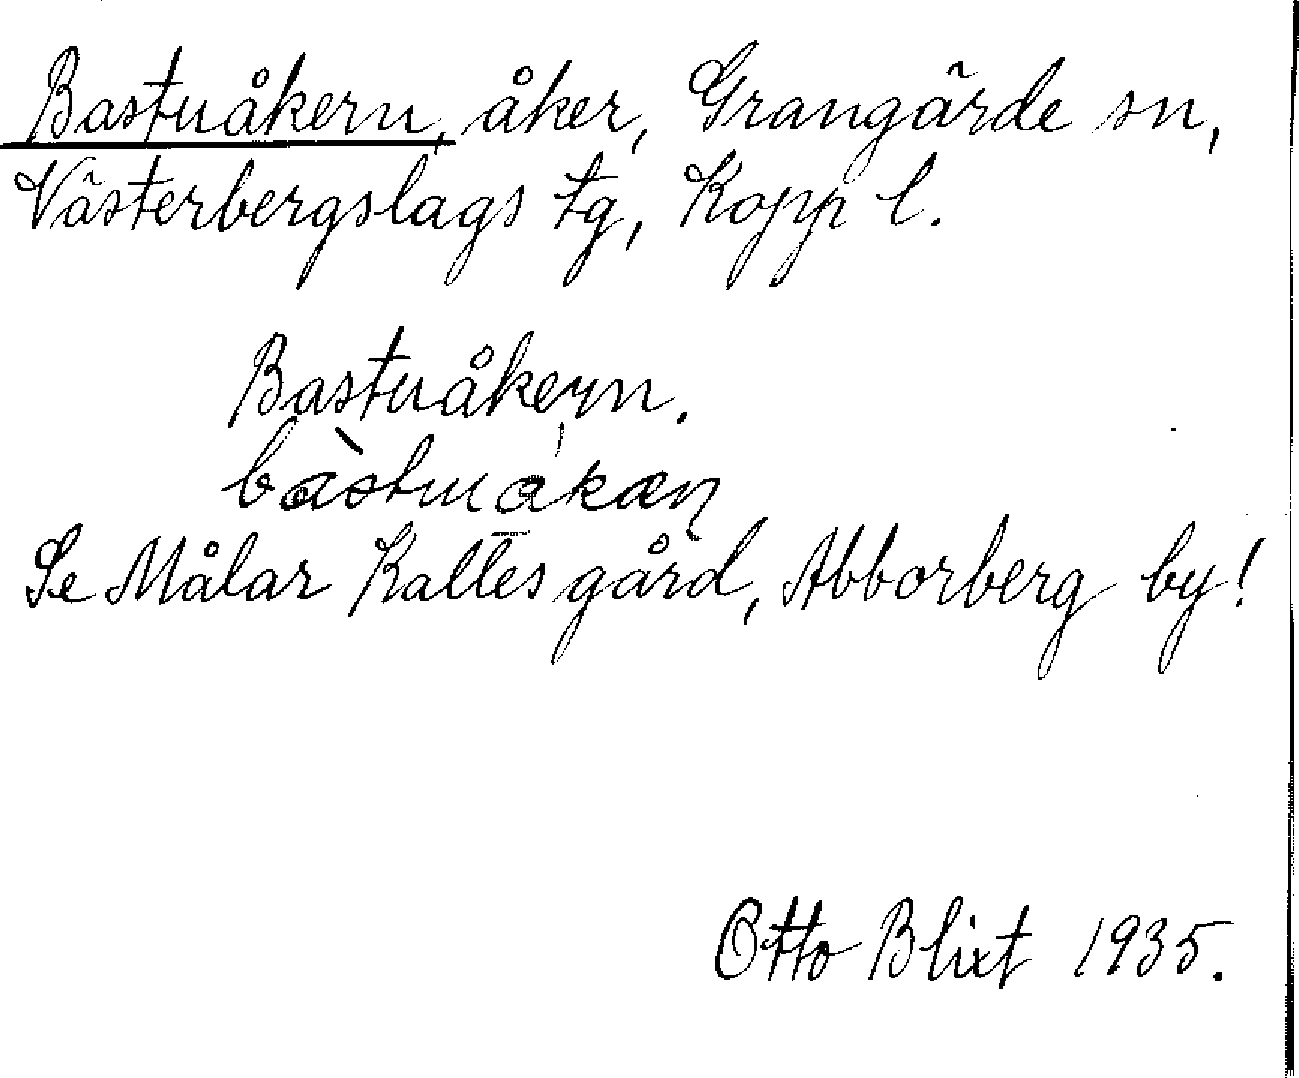 Bastuåkern, åker, Grangärde sn,
Västerbergslags tg, Kopp l.
Bastuåkern.
Se Målar Kalles gård, Abborberg by!
Otto Blixt 1935.